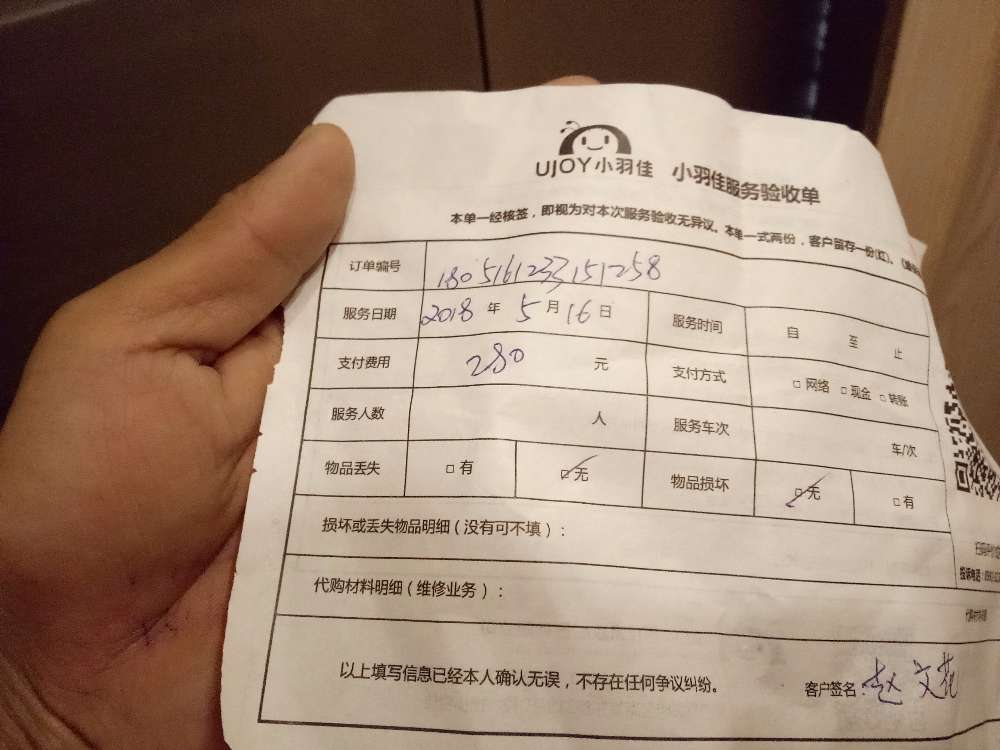 UJOY小羽佳 小羽佳服务验收单
本单一经核签，即视为对本次服务验收无异议。本单一式两份，客户留存一份(红)。
订单编号 1805161233151258
服务日期 2018 年 5 月 16 日 服务时间 自 至 止
支付费用 280 元 支付方式 □ 网络 □ 现金 □ 转账
服务人数 人 服务车次 车/次
物品丢失 □ 有 □ 无 物品损坏 □ 无 □ 有
损坏或丢失物品明细（没有可不填）：
投诉电话
代购材料明细（维修业务）：
以上填写信息已经本人确认无误，不存在任何争议纠纷。 客户签名：赵文花